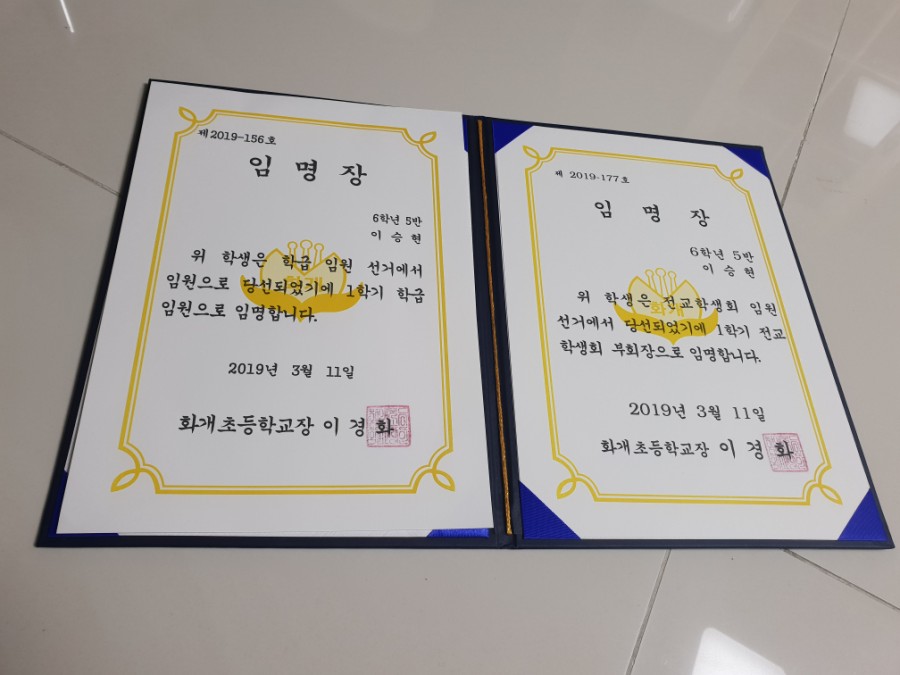 제2019-156호
임 명 장
6학년 5반
이 승 현
위 학생은 학급 임원 선거에서
임원으로 당선되었기에 1학기 학급
임원으로 임명합니다.
2019년 3월 11일
화개초등학교장 이 경 화
제 2019-177호
임 명 장
6학년 5반
이 승 현
위 학생은 전교학생회 임원
선거에서 당선되었기에 1학기 전교
학생회 부회장으로 임명합니다.
2019년 3월 11일
화개초등학교장 이 경 화
화개